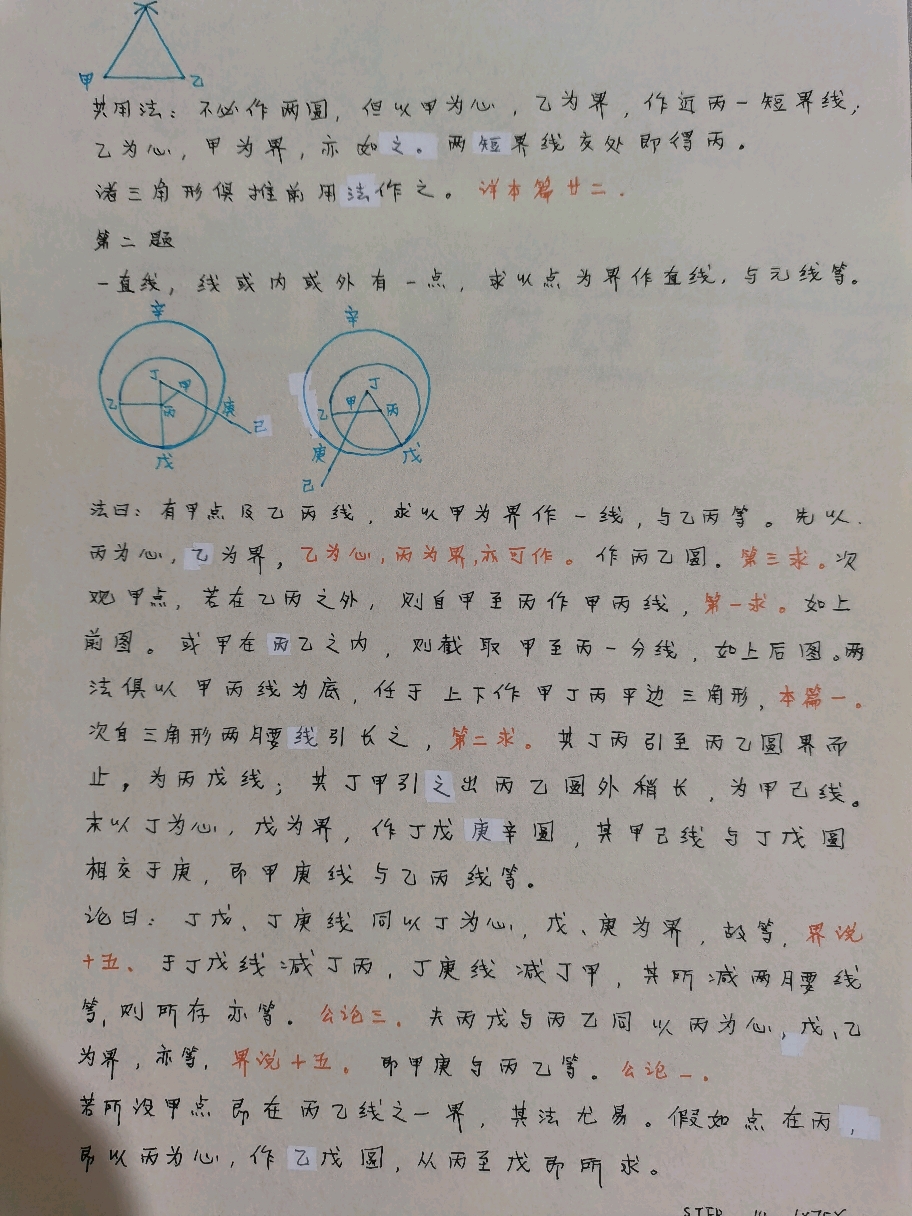 甲 乙
其用法：不必作两圜，但以甲为心，乙为界，作近丙一短界线；
乙为心，甲为界，亦如之。两短界线交处即得丙。
诸三角形俱推前用法作之。详本篇廿二．
第二题
一直线，线或内或外有一点，求以点为界作直线，与元线等。
辛 辛
丁 甲 乙 丙 庚 己 戊
丁 甲 乙 丙 庚 戊 己
法曰：有甲点及乙丙线，求以甲为界作一线，与乙丙等。先以
丙为心，乙为界，乙为心，丙为界，亦可作。作丙乙圜。第三求。次
观甲点，若在乙丙之外，则自甲至丙作甲丙线，第一求。如上
前图。或甲在丙乙之内，则截取甲至丙一分线，如上后图。两
法俱以甲丙线为底，任于上下作甲丁丙平边三角形，本篇一。
次自三角形两腰线引长之，第二求。其丁丙引至丙乙圜界而
止，为丙戊线；其丁甲引之出丙乙圜外稍长，为甲己线。
末以丁为心，戊为界，作丁戊庚辛圜，其甲己线与丁戊圜
相交于庚，即甲庚线与乙丙线等。
论曰：丁戊、丁庚线同以丁为心，戊、庚为界，故等，界说
十五、于丁戊线减丁丙，丁庚线减丁甲，其所减两腰线
等，则所存亦等。公论三．夫丙戊与丙乙同以丙为心，戊、乙
为界，亦等，界说十五。即甲庚与丙乙等。公论一．
若所设甲点即在丙乙线之一界，其法尤易。假如点在丙，
即以丙为心，作乙戊圜，从丙至戊即所求。